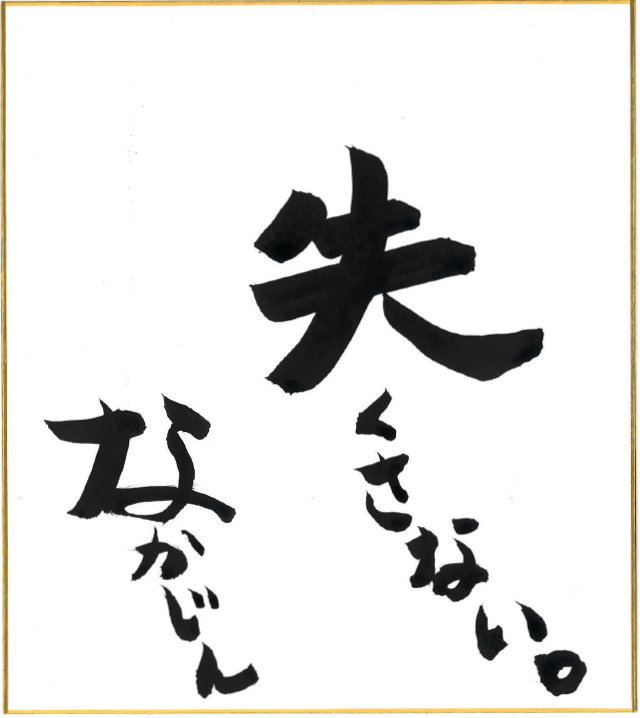 失くさない。
なかじん